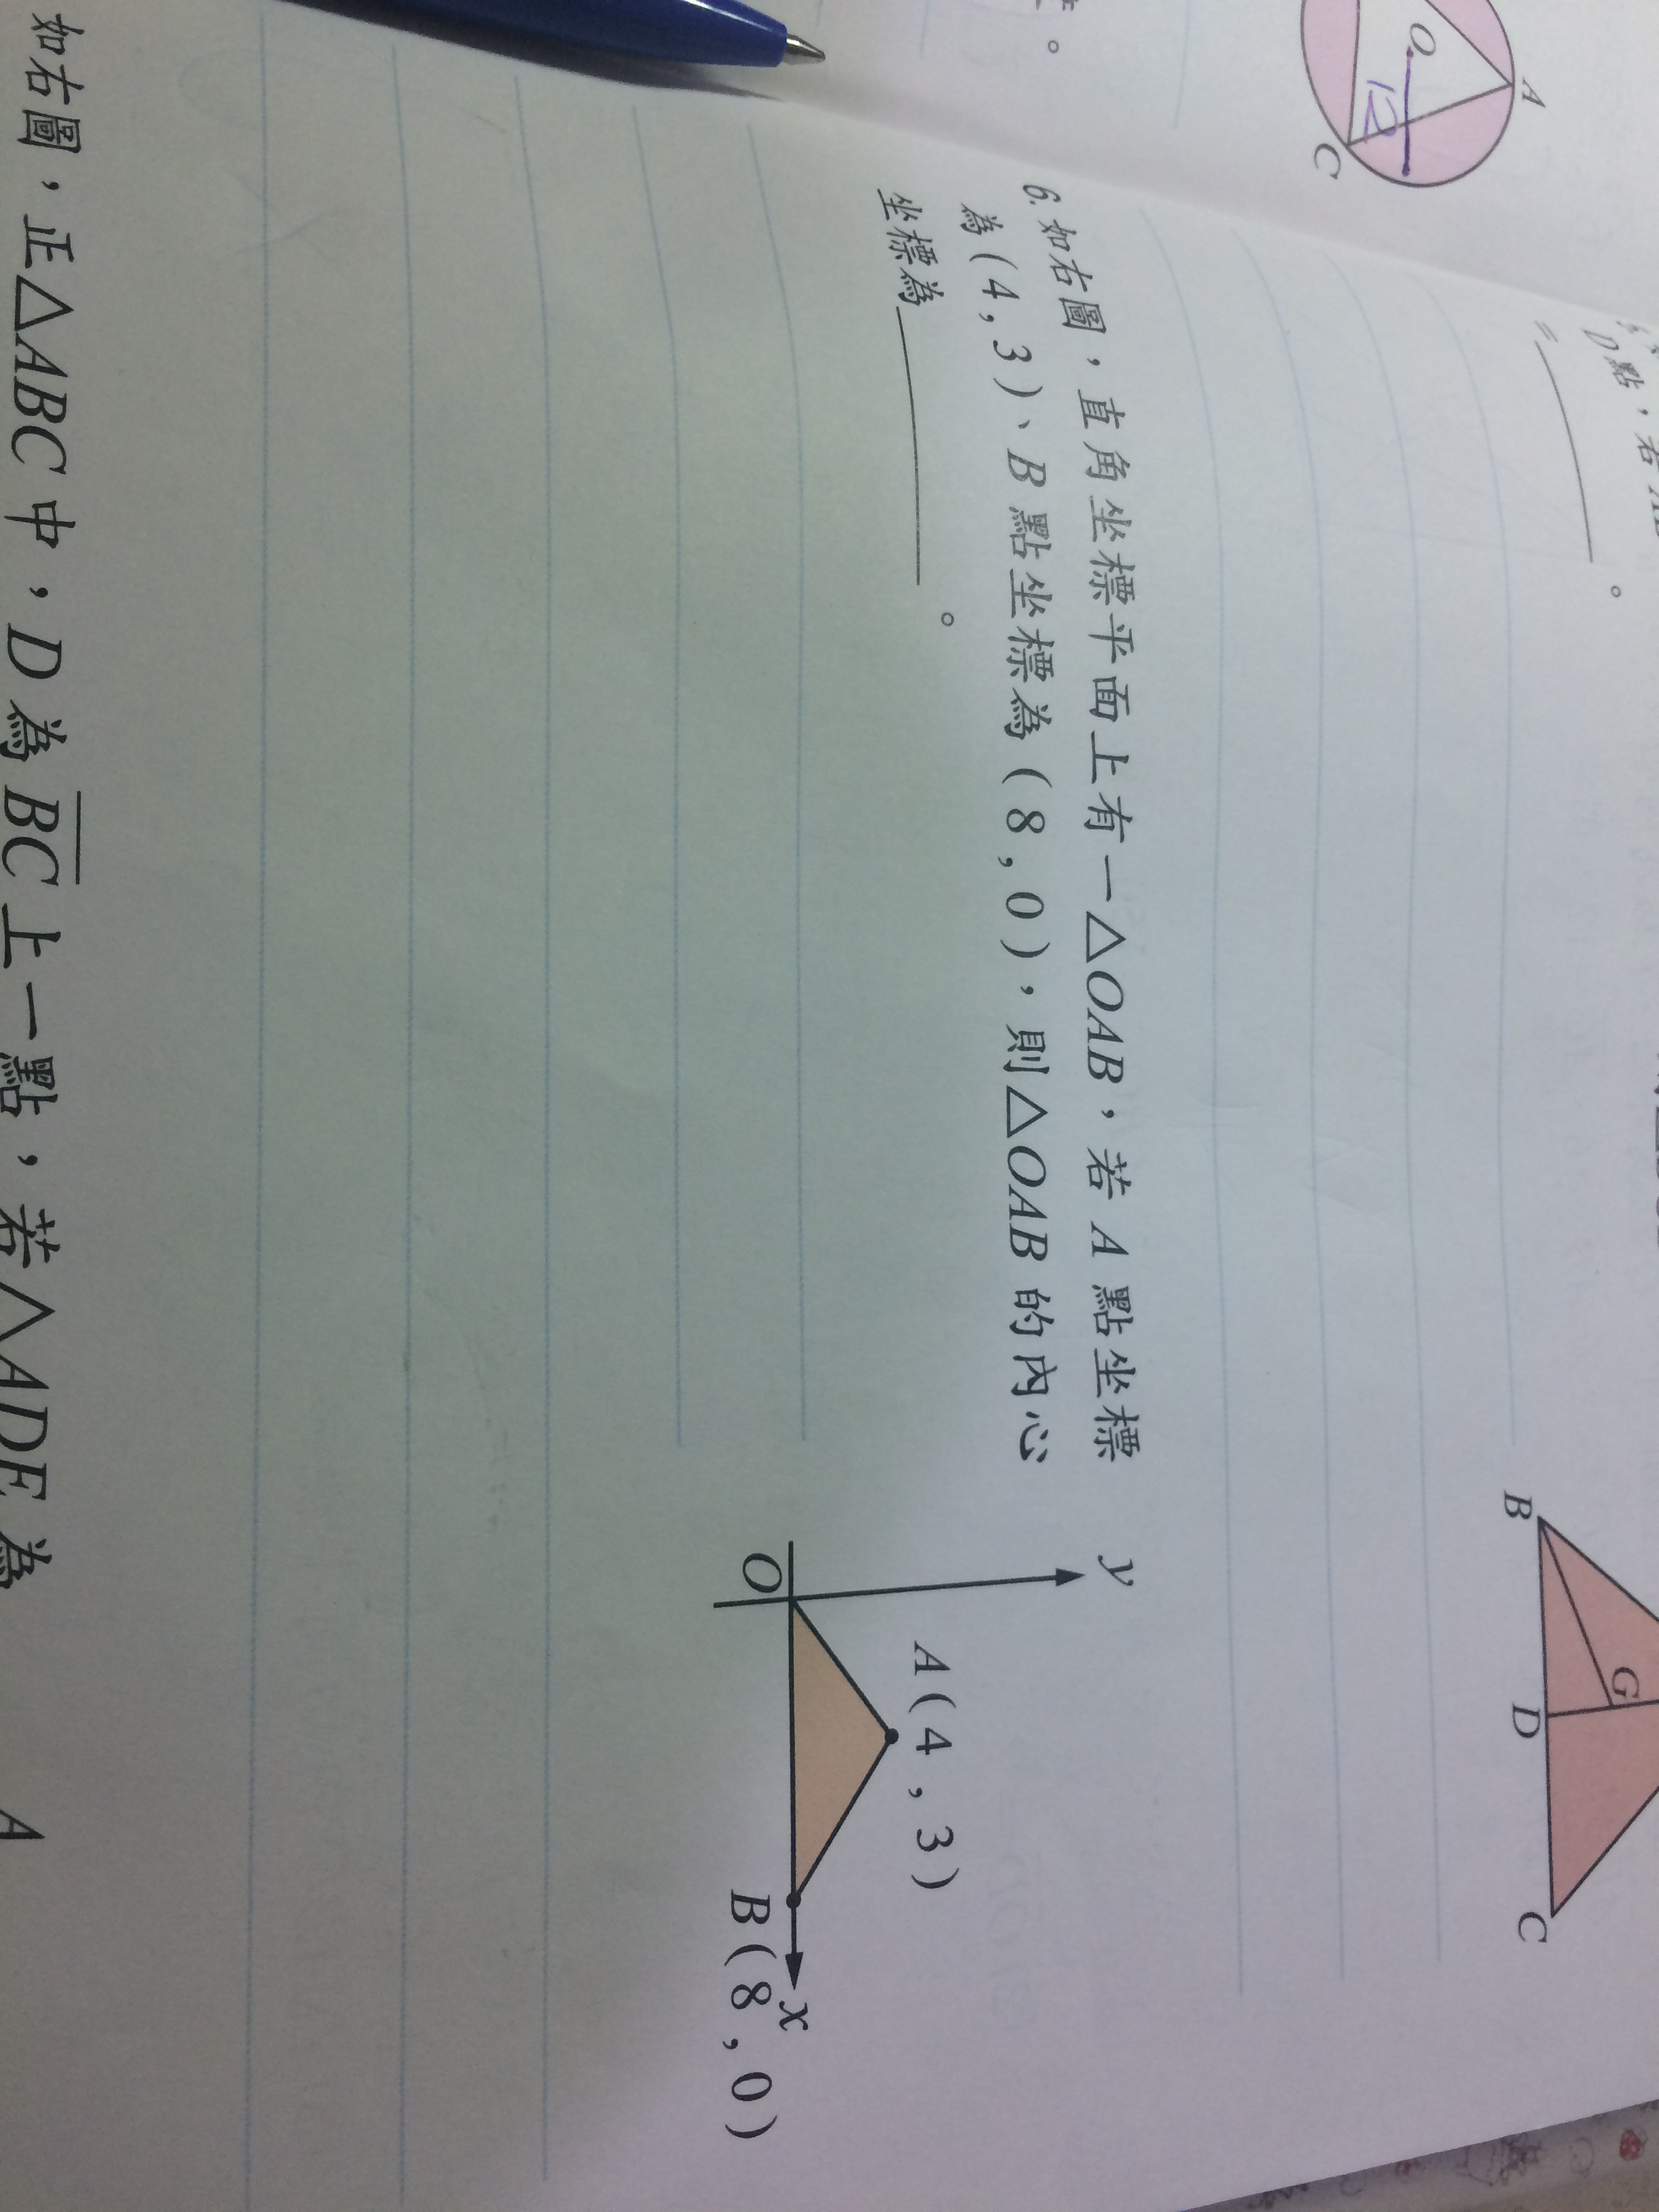 A
O
12
C
。
D點，若
=
。
B
G
D
C
6.如右圖，直角坐標平面上有一△OAB，若 A 點坐標
為(4,3)、B 點坐標為(8,0)，則△OAB 的內心
坐標為
。
y
A(4,3)
O
x
B(8,0)
如右圖，正△ABC 中，D 為 BC 上一點，若△ADE 為
A